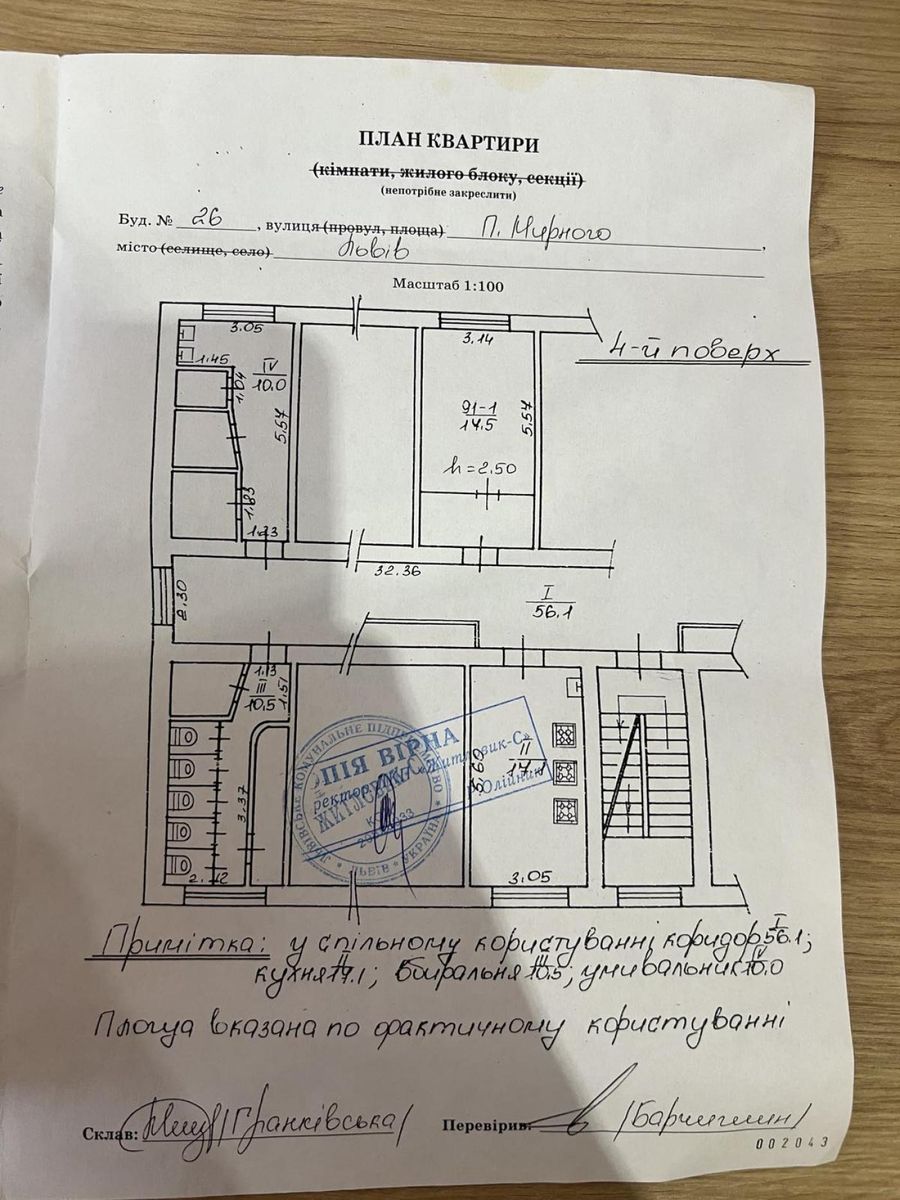 ПЛАН КВАРТИРИ
(кімнати, жилого блоку, секції)
(непотрібне закреслити)
Буд. № 26, вулиця (провул, площа) П. Мирного,
місто (селище, село) Львів
Масштаб 1:100
4-й поверх
3.05
3.14
1.45
IV
10.0
1.04
5.57
91-1
14.5
5.57
h=2.50
1.83
1.23
32.36
2.30
I
56.1
1.13
III
10.5
1.51
3.37
2.12
II
17.1
5.60
3.05
КОПІЯ ВІРНА
Директор «Житловик-С»
Олійник
ЛЬВІВСЬКЕ КОМУНАЛЬНЕ ПІДПРИЄМСТВО
ЛЬВІВ * УКРАЇНА
Примітка: у спільному користуванні коридор I 56.1;
кухня II 17.1; вбиральня III 10.5; умивальник IV 10.0
Площа вказана по фактичному користуванні
Склав: /Гранківська/
Перевірив:
002043